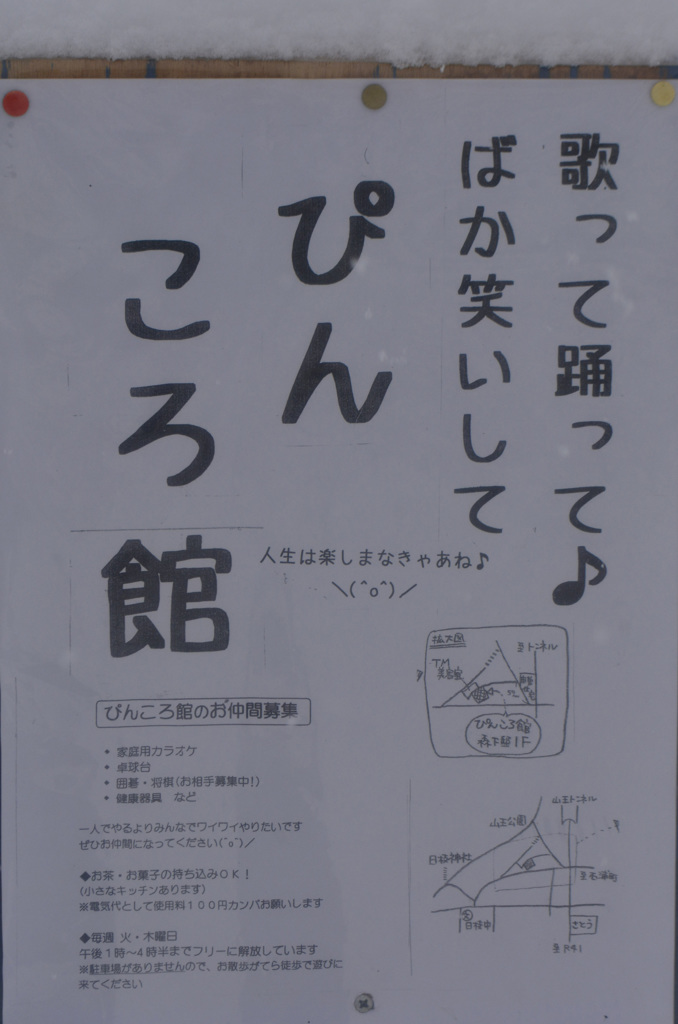 歌って踊って♪
ばか笑いして
ぴん
ころ
館
人生は楽しまなきゃあね♪
＼(^o^)／
ぴんころ館のお仲間募集
◆ 家庭用カラオケ
◆ 卓球台
◆ 囲碁・将棋(お相手募集中!)
◆ 健康器具　など
一人でやるよりみんなでワイワイやりたいです
ぜひお仲間になってください(^o^)／
◆お茶・お菓子の持ち込みＯＫ！
(小さなキッチンあります)
※電気代として使用料１００円カンパお願いします
◆毎週 火・木曜日
午後１時～４時半までフリーに解放しています
※駐車場がありませんので、お散歩がてら徒歩で遊びに
来てください
拡大図
至トンネル
TM
美容室
ココ
ぴんころ館
森下邸1F
山王トンネル
山王公園
日枝神社
日枝中
さとう
至R41